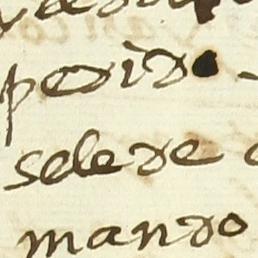 pedido
sele de
mando